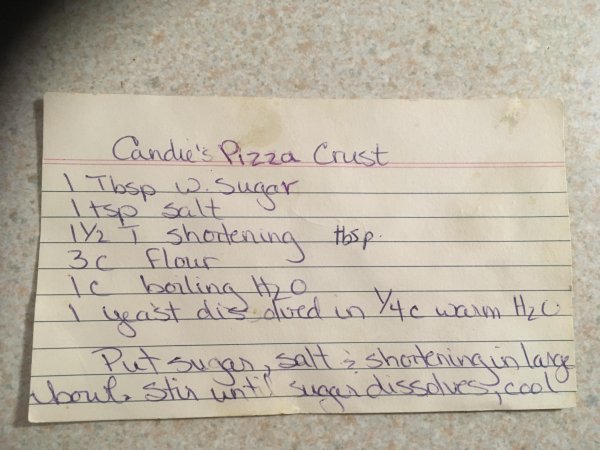 Candie's Pizza Crust
1 Tbsp w. Sugar
1 tsp salt
1 1/2 T shortening tbsp.
3c flour
1c boiling H2O
1 yeast dis olved in 1/4c warm H2O
Put sugar, salt & shortening in large
bowl. Stir until sugar dissolves, cool